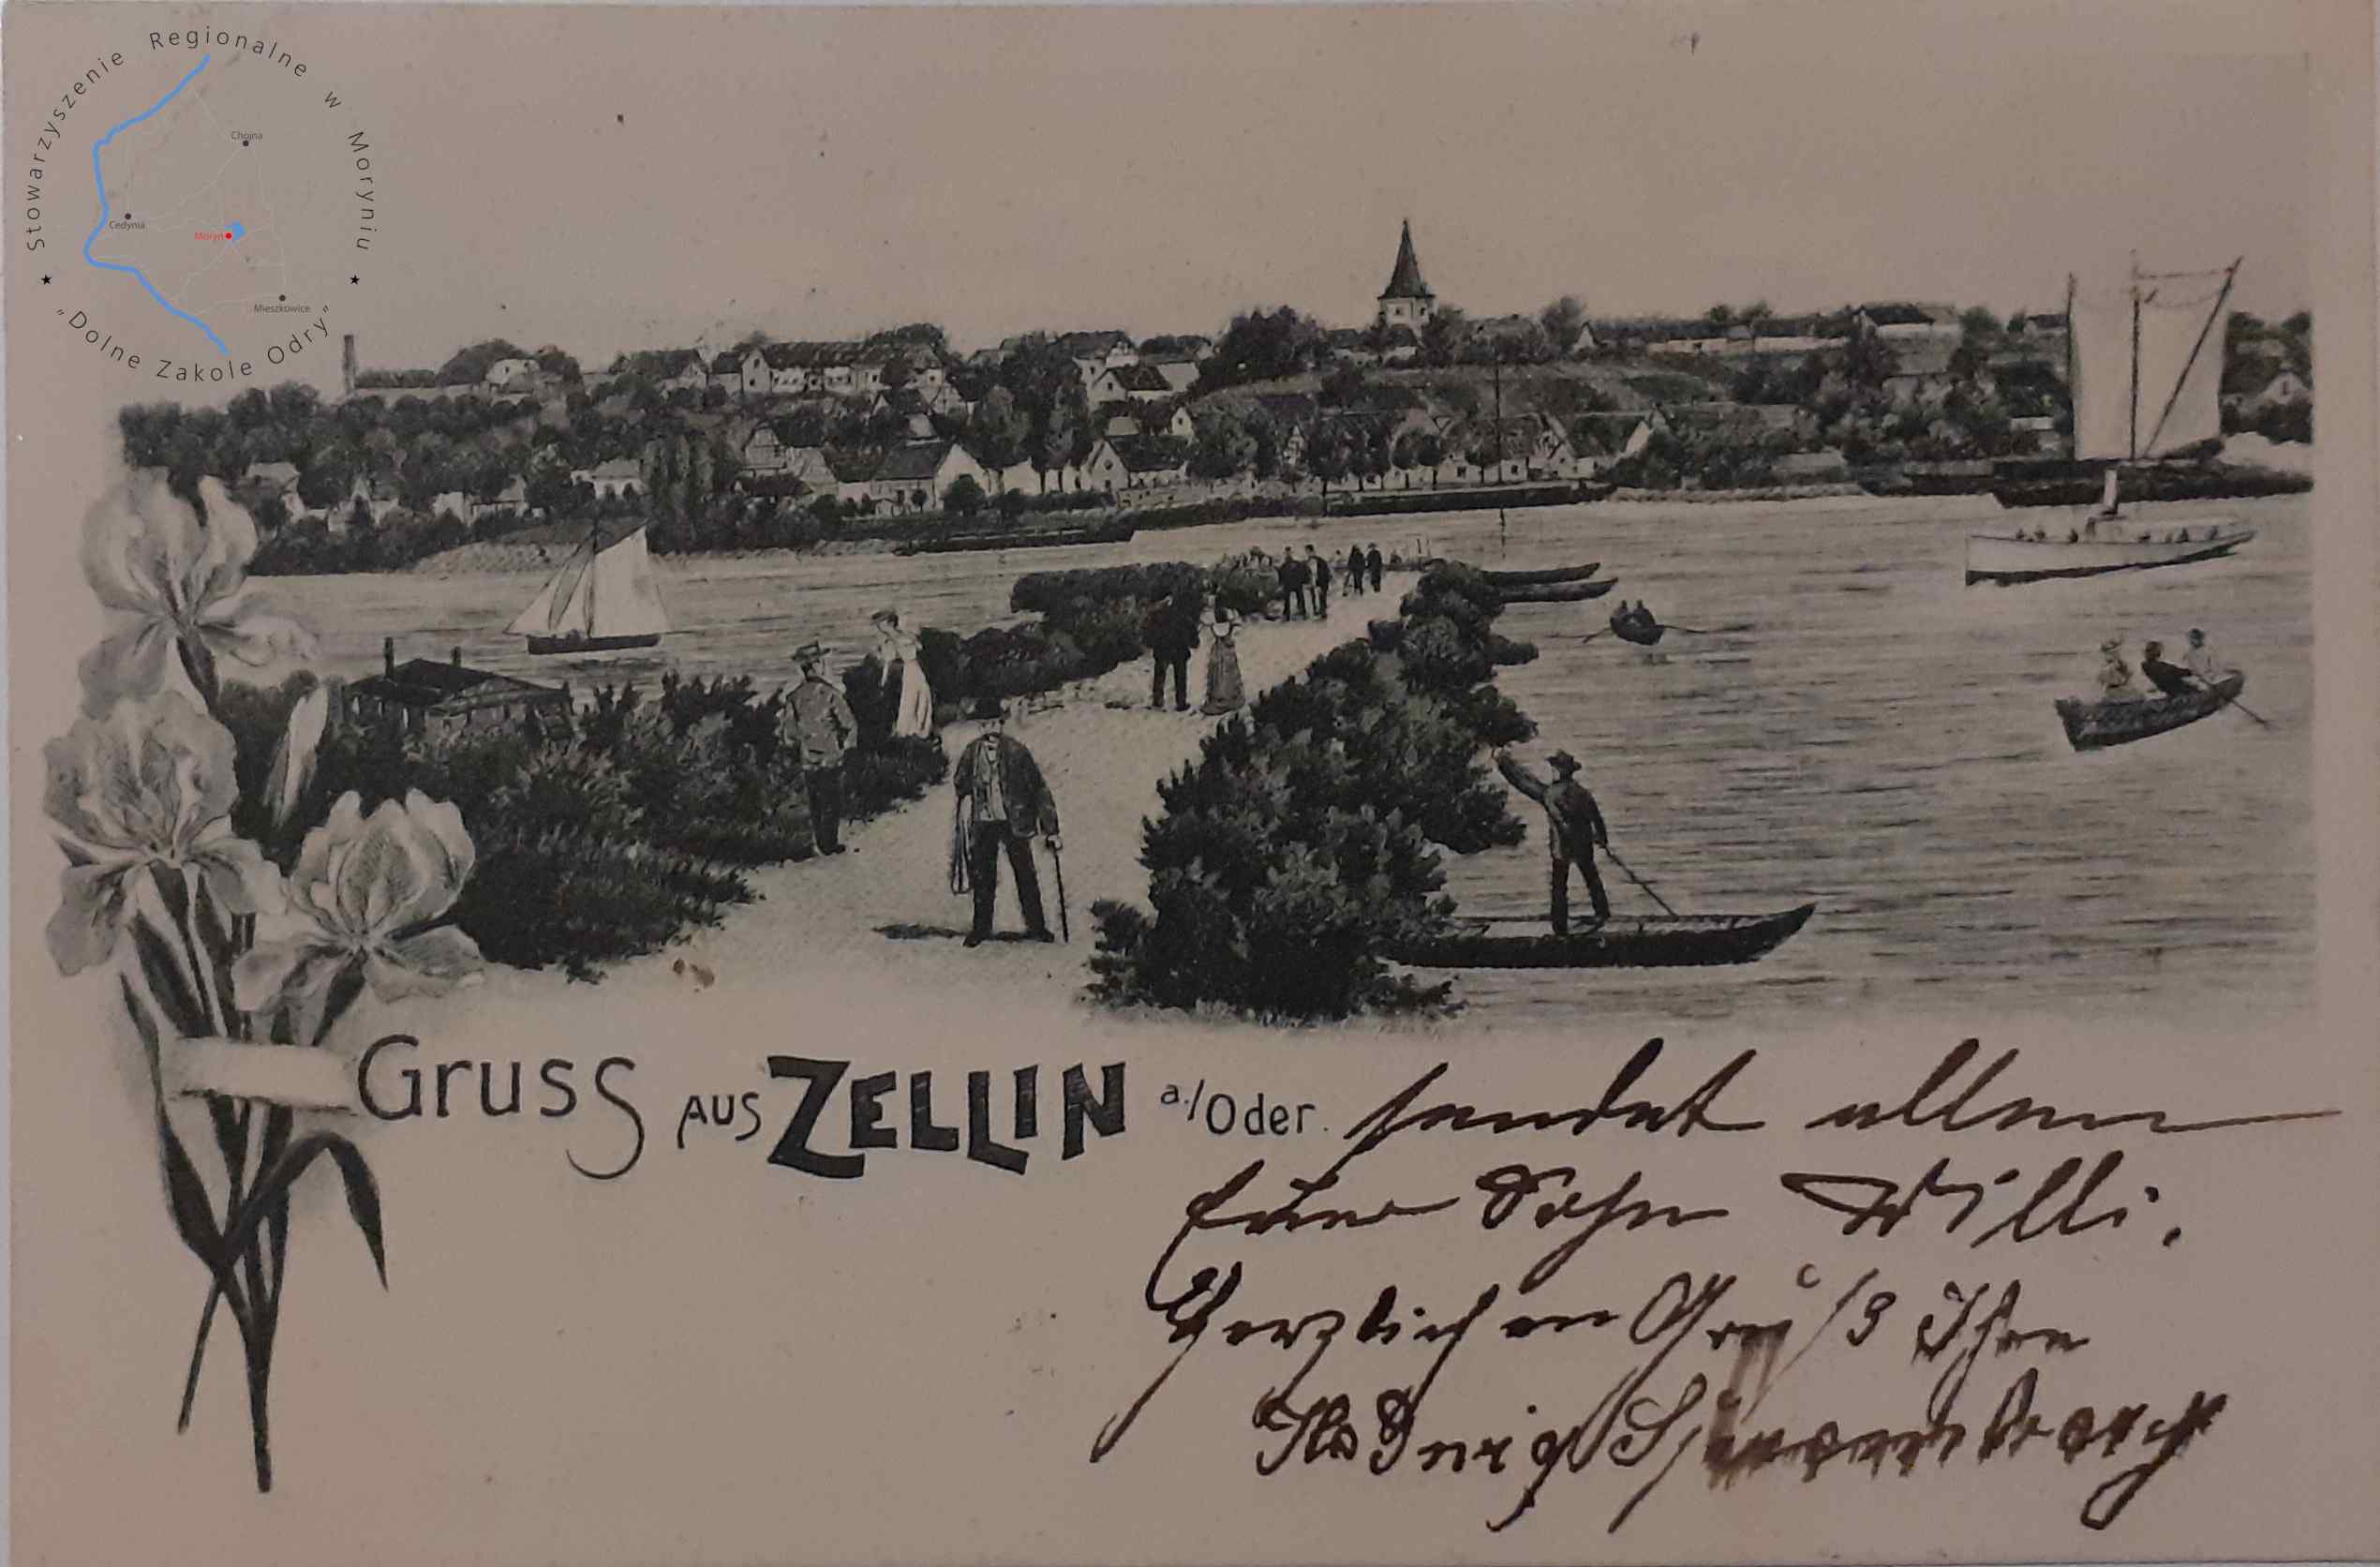 Stowarzyszenie Regionalne w Moryniu
"Dolne Zakole Odry"
Chojna
Cedynia
Moryń
Mieszkowice
Gruss aus ZELLIN a./Oder. sendet allen
Euer Sohn Willi.
Herzlichen Gruß Ihre
Hedwig